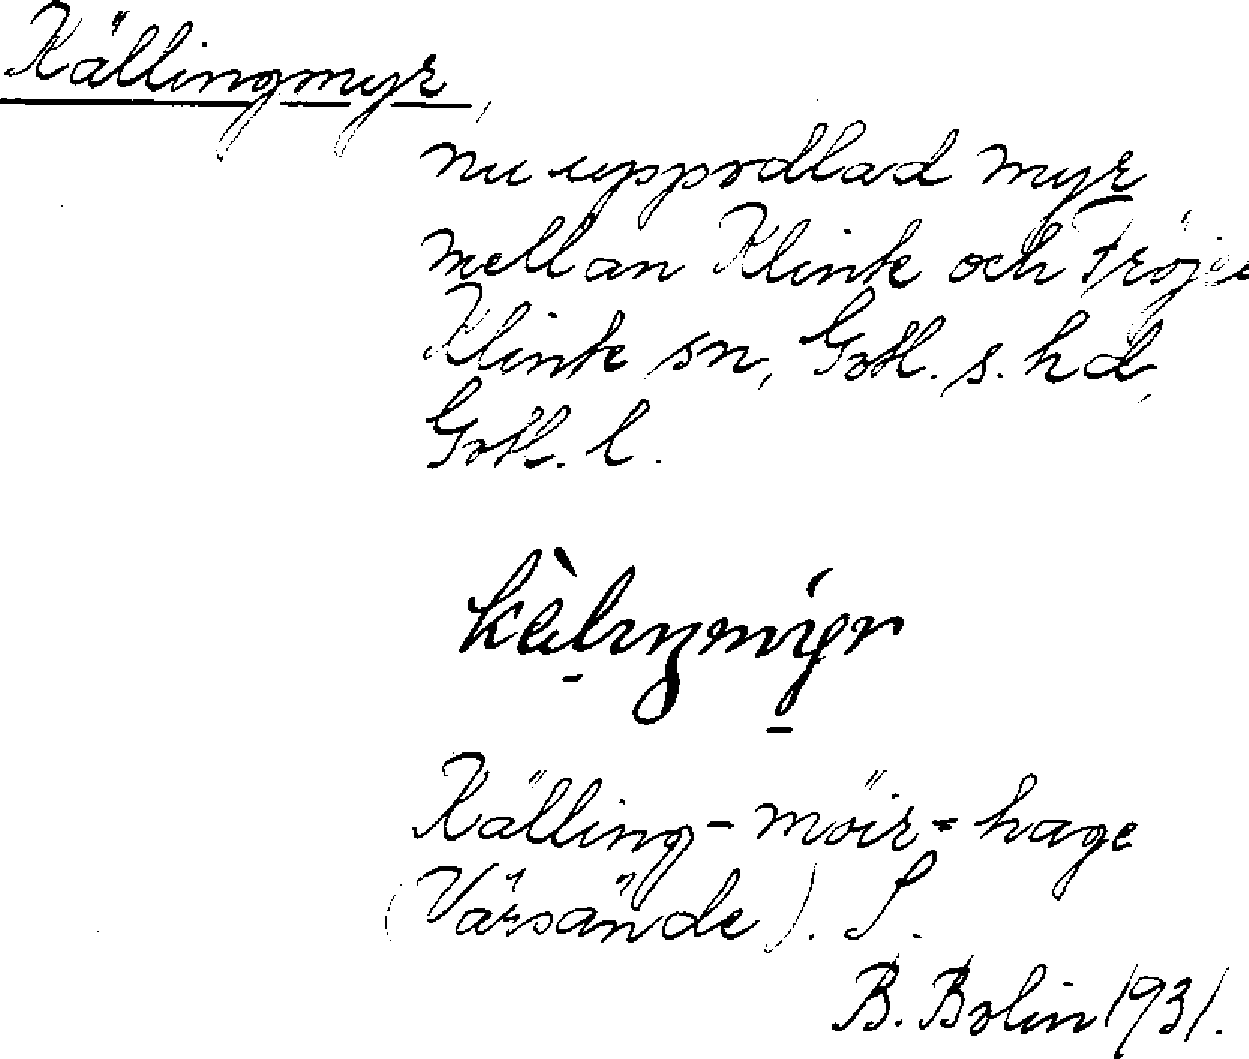 Källingmyr,
nu uppodlad myr
mellan Klinte och Fröjel
Klinte sn, Gotl. s. hd,
Gotl. l.
Källing-möir-hage
(Värsände). S.
B. Bolin 1931.